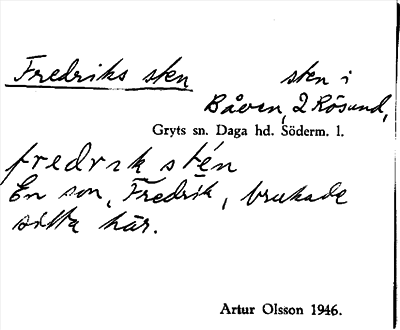 Fredriks sten sten i
Båven, 2 Rösund,
Gryts sn. Daga hd. Söderm. l.
fredrɩk stén
En son, Fredrik, brukade
sitta här.
Artur Olsson 1946.